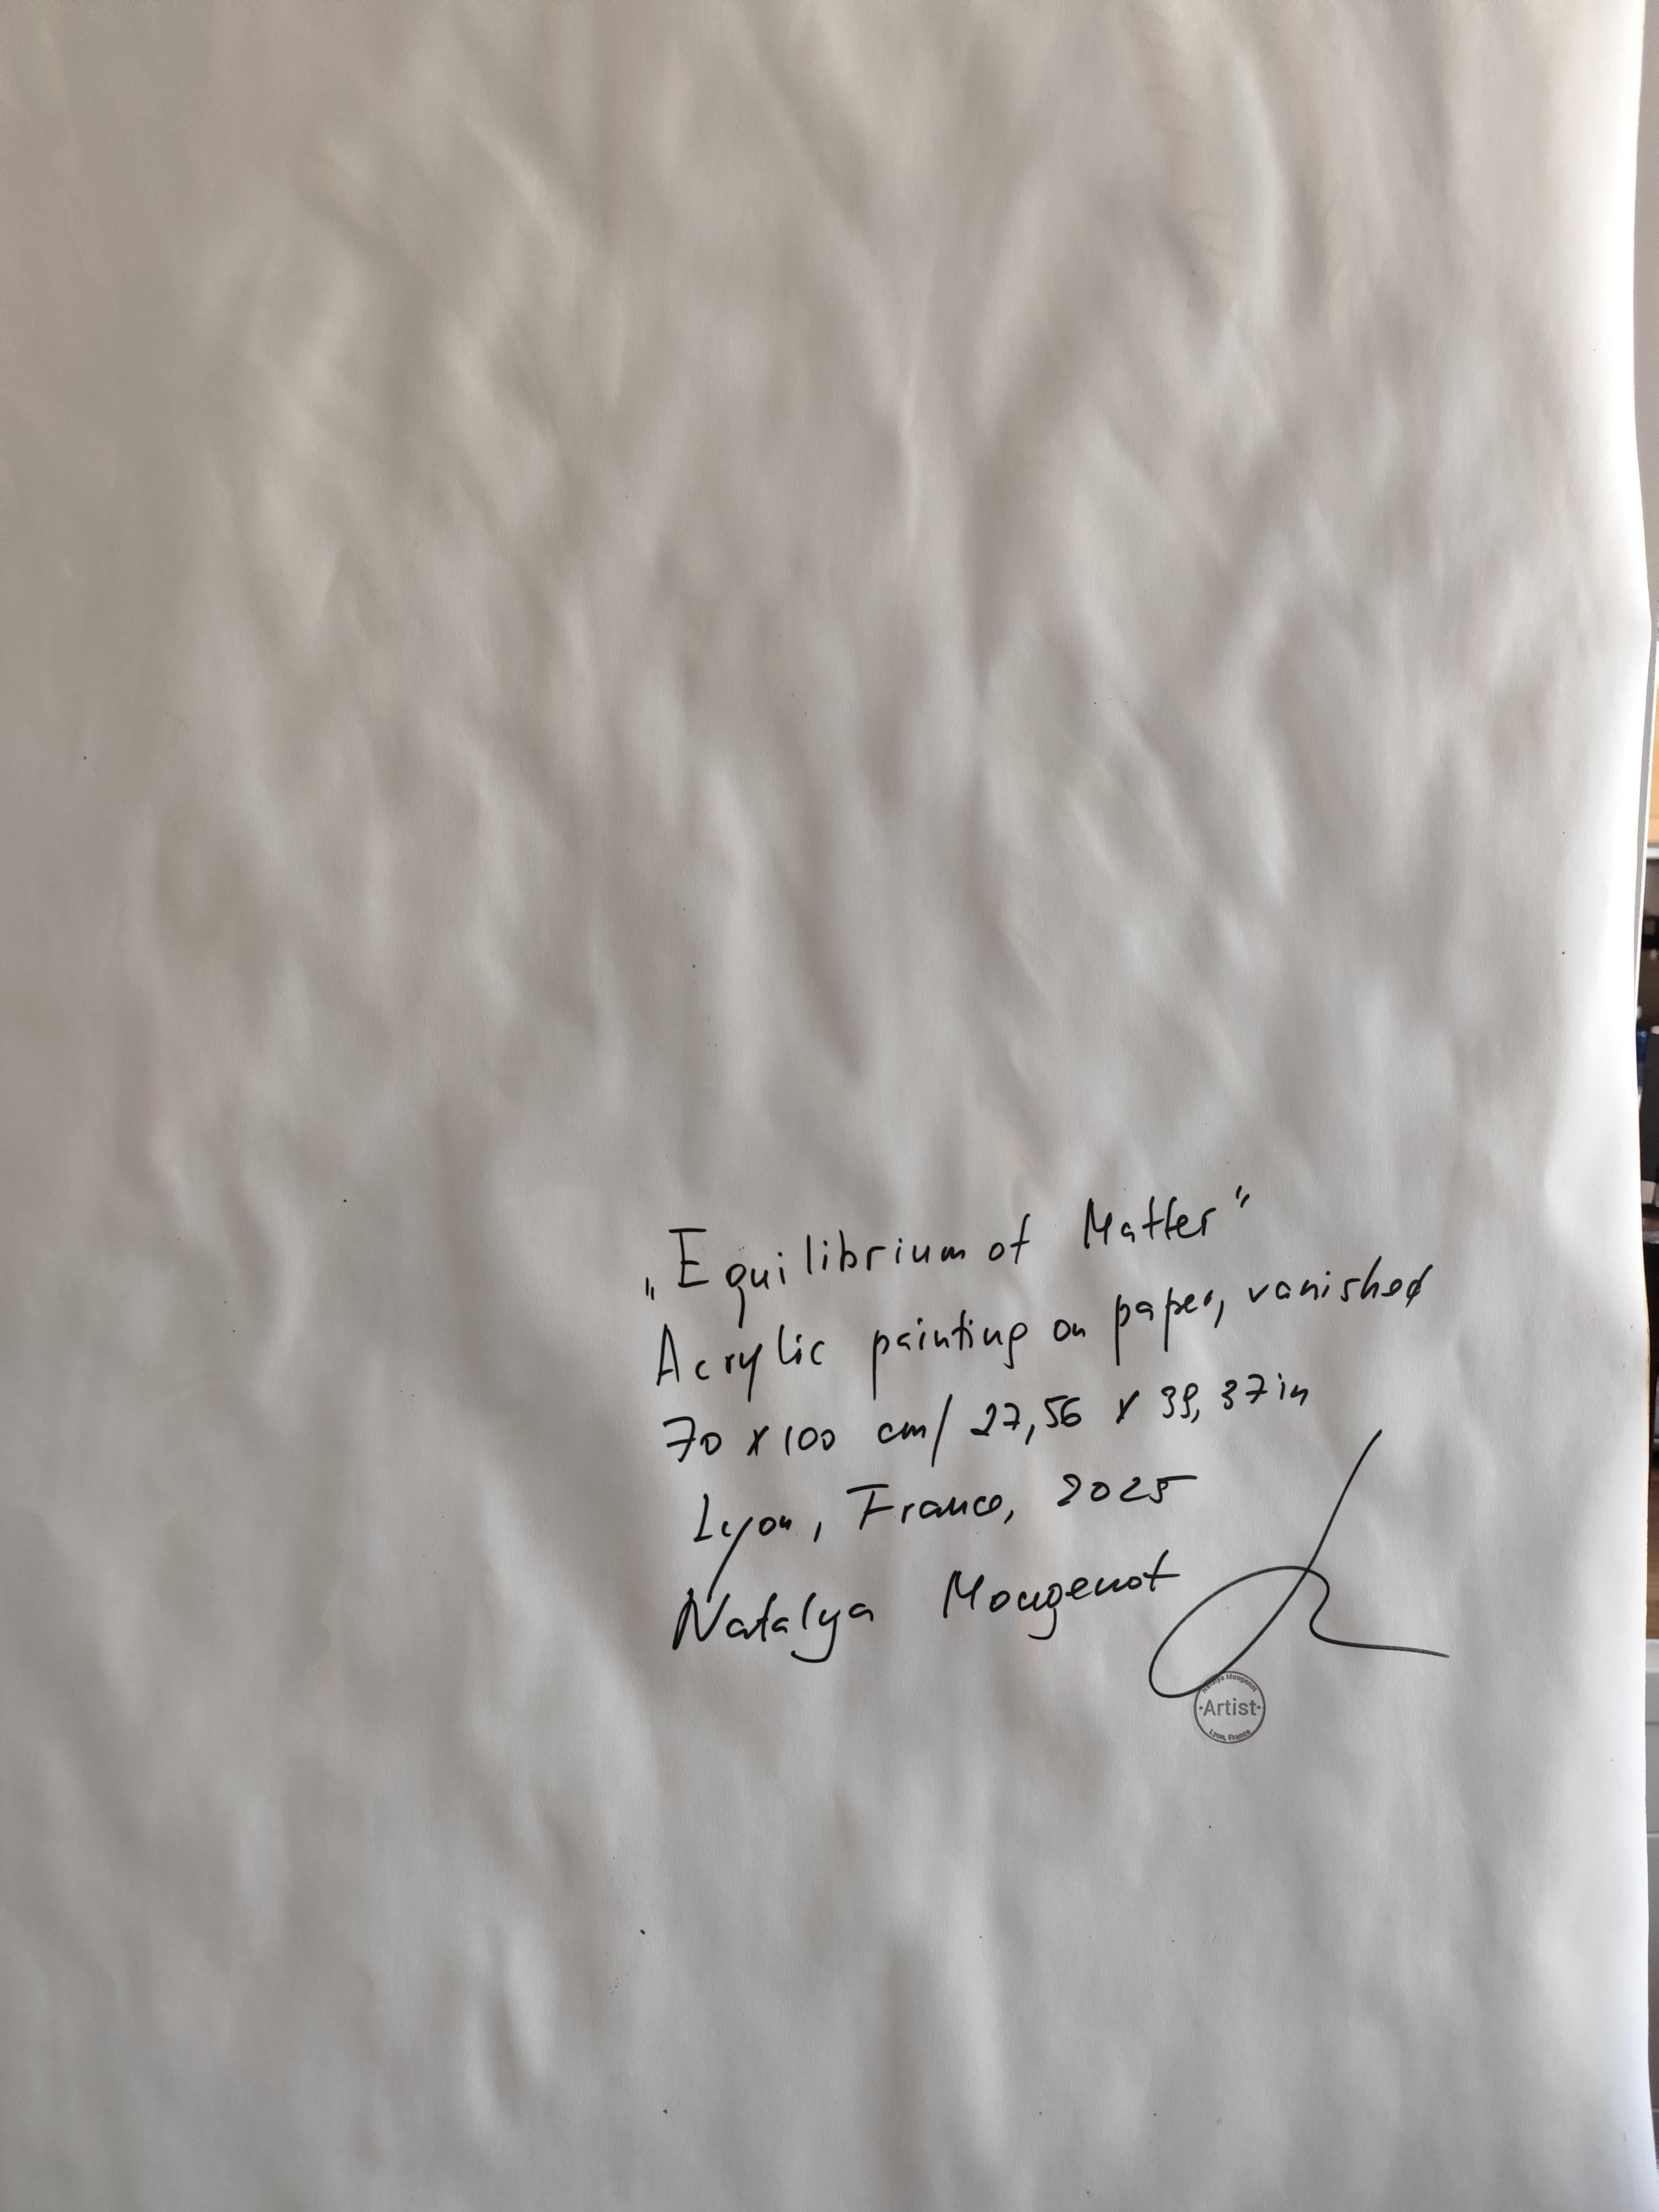 „Equilibrium of Matter"
Acrylic painting on paper, vanished
70 x 100 cm/ 27,56 x 39,37 in
Lyon, France, 2025
Natalya Mougenot
Natalya Mougenot
·Artist·
Lyon, France